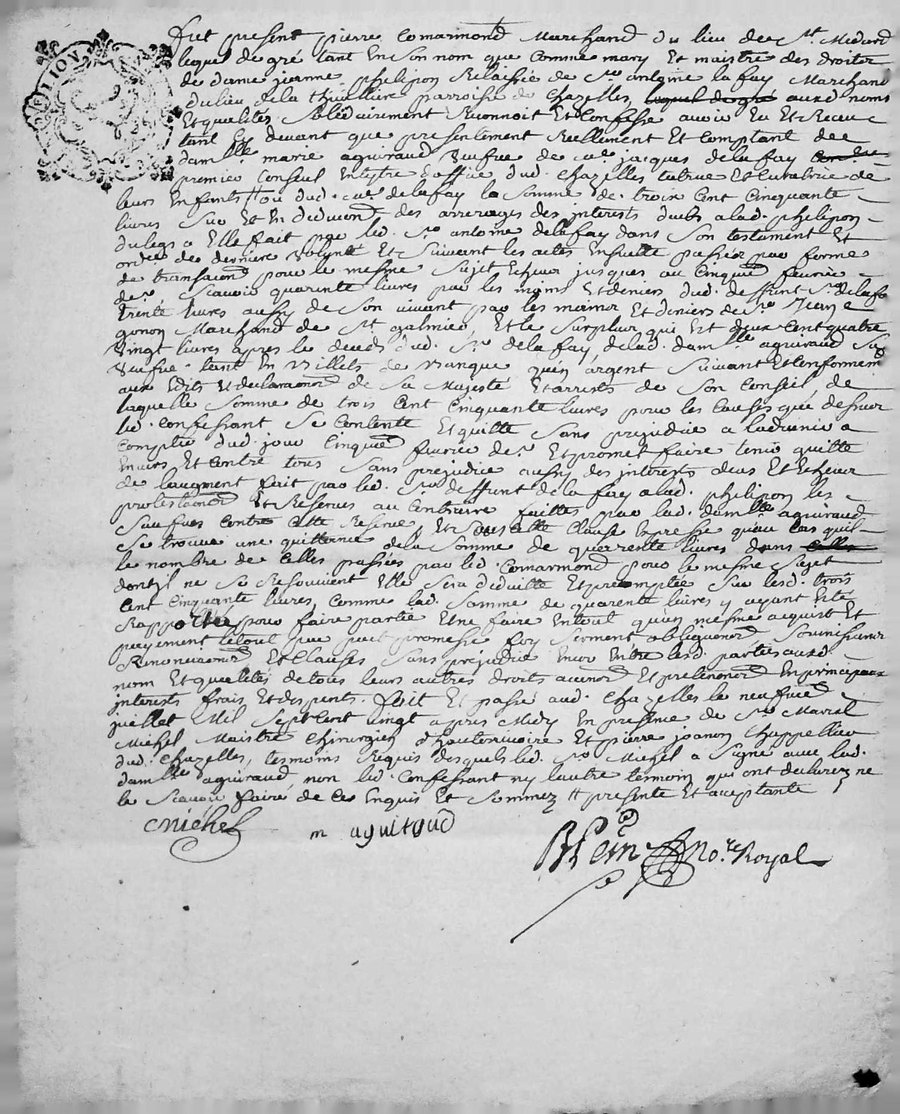 Fut present pierre Comarmond Marchand du lieu de St. Medard
lequel de gré tant en son nom que comme mary et maistre des droits
de dame jeanne philipon Relaissée de Sr. antoine la fay Marchand
du lieu de la thuilliere parroisse de Chazelles, lequel de gré auxd noms
et qualités Solidairement Reconnoit et Confesse avoir Eu et Receu
tant cy devant que presentement Reellement et Comptant de
damlle marie aguiraud veufve de me. jacques delafay
premier Conseul en dud. Chazelles tutrice et Curatrice de
leurs Enfents ou dud. me. delafay la somme de trois cent cinquante
livres sur et en des arrerages des interests a lad. philipon
du legs a Elle fait par led. Sr. antoine delafay dans son testament et
de derniere volonté et suivant les actes Ensuitte passés par forme
de pour le mesme sujet jusques au cinquie fevrier
der. Scavoir quarente livres par les mains et deniers dud. deffunt Sr. delafay
trente livres aussy de son vivant par les mains et deniers de Sr. Jean
gonon Marchand de St galmier, et le surplus qui est deux cent quatre
vingt livres apres le deceds dud. Sr. delafay, de lad. damlle aguiraud sa
veufve tant en Billets de Banque qu'en argent suivant et conformem
aux Edits et declaraons de sa Majesté et arrests de son conseil de
laquelle somme de trois cent cinquante livres pour les causes que dessus
led. confessant se contente et quitte sans prejudice a
compter dud. jour cinquie fevrier der et promet faire tenir quitte
Envers et contre tous sans prejudice aussy des interests deus et
de laugment fait par led. Sr. deffunt delafay a lad. philipon les
protestaons et Reserves au contraire faittes par lad. damlle aguiraud
sauves contre cette Reserve, et clause Expresse qu'au cas qu'il
se trouve une quittance de la somme de quarente livres dans celles
le nombre de celles passées par led. Comarmond pour le mesme sujet
dont il ne se Ressouvient Elle sera deduitte et precomptée sur lesd. trois
cent cinquante livres, comme lad. somme de quarente livres y ayant Eté
Rapportée pour faire partie et ne faire Entout qu'un mesme acquist et
payement letout par promesse foy serment obligaons soumissions
Renonciaons et clauses sans prejudice Encor Entre lesd. parties auxd.
nom et qualités de tous leurs autres droits actions et pretentions En principaux
interests frais et despents. fait et passé aud. Chazelles le neufvie
juillet Mil sept cent vingt apres Midy En presence de Sr. Marcel
Michel Maistre chirurgien d'hauterivoire et pierre joanon Chappellier
dud. Chazelles, tesmoins Requis desquels led. Sr. Michel a signé avec lad.
damlle aguiraud non led. confessant ny lautre temoin qui ont declarez ne
le scavoir faire de ces Enquis et sommez presente et aceptante
Michel
m aguiraud
Blein No.re Royal